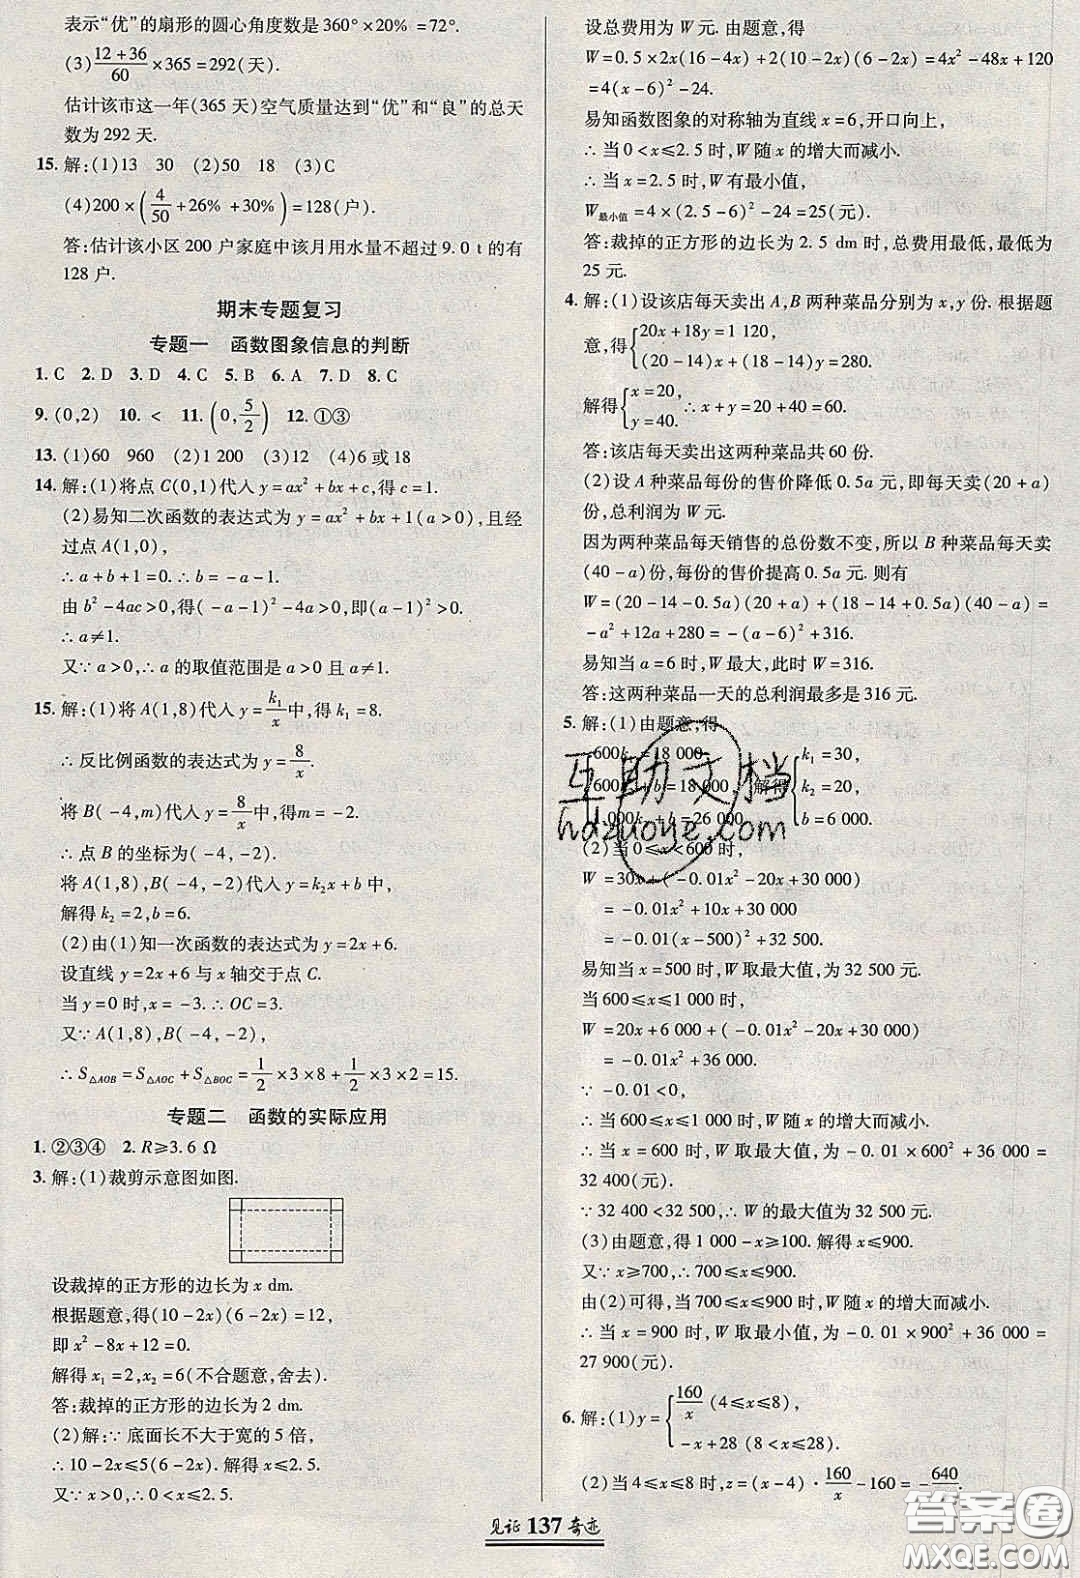 表示“优”的扇形的圆心角度数是360°×20%=72°.
(3)(12+36)/60×365=292(天).
估计该市这一年(365天)空气质量达到“优”和“良”的总天
数为292天.
15.解:(1)13 30 (2)50 18 (3)C
(4)200×(4/50+26%+30%)=128(户).
答:估计该小区200户家庭中该月用水量不超过9.0 t的有
128户.
期末专题复习
专题一 函数图象信息的判断
1. C 2. D 3. D 4. C 5. B 6. A 7. D 8. C
9. (0,2) 10. < 11. (0,5/2) 12. ①③
13. (1)60 960 (2)1 200 (3)12 (4)6或18
14.解:(1)将点C(0,1)代入y=ax²+bx+c,得c=1.
(2)易知二次函数的表达式为y=ax²+bx+1(a>0),且经
过点A(1,0),
∴a+b+1=0.∴b=-a-1.
由b²-4ac>0,得(-a-1)²-4a>0,即(a-1)²>0.
∴a≠1.
又∵a>0,∴a的取值范围是a>0且a≠1.
15.解:(1)将A(1,8)代入y=k₁/x中,得k₁=8.
∴反比例函数的表达式为y=8/x.
将B(-4,m)代入y=8/x中,得m=-2.
∴点B的坐标为(-4,-2).
将A(1,8),B(-4,-2)代入y=k₂x+b中,
解得k₂=2,b=6.
(2)由(1)知一次函数的表达式为y=2x+6.
设直线y=2x+6与x轴交于点C.
当y=0时,x=-3.∴OC=3.
又∵A(1,8),B(-4,-2),
∴S△AOB=S△AOC+S△BOC=1/2×3×8+1/2×3×2=15.
专题二 函数的实际应用
1. ②③④ 2. R≥3.6 Ω
3.解:(1)裁剪示意图如图.
设裁掉的正方形的边长为x dm.
根据题意,得(10-2x)(6-2x)=12,
即x²-8x+12=0.
解得x₁=2,x₂=6(不合题意,舍去).
答:裁掉的正方形的边长为2 dm.
(2)解:∵底面长不大于宽的5倍,
∴10-2x≤5(6-2x).解得x≤2.5.
又∵x>0,∴0<x≤2.5.
设总费用为W元.由题意,得
W=0.5×2x(16-4x)+2(10-2x)(6-2x)=4x²-48x+120
=4(x-6)²-24.
易知函数图象的对称轴为直线x=6,开口向上,
∴当0<x≤2.5时,W随x的增大而减小.
∴当x=2.5时,W有最小值,
W最小值=4×(2.5-6)²-24=25(元).
答:裁掉的正方形的边长为2.5 dm时,总费用最低,最低为
25元.
4.解:(1)设该店每天卖出A,B两种菜品分别为x,y份.根据题
意,得{20x+18y=1 120,
(20-14)x+(18-14)y=280.
解得{x=20,
y=40.∴x+y=20+40=60.
答:该店每天卖出这两种菜品共60份.
(2)设A种菜品每份的售价降低0.5a元,即每天卖(20+a)
份,总利润为W元.
因为两种菜品每天销售的总份数不变,所以B种菜品每天卖
(40-a)份,每份的售价提高0.5a元.则有
W=(20-14-0.5a)(20+a)+(18-14+0.5a)(40-a)=
-a²+12a+280=-(a-6)²+316.
易知当a=6时,W最大,此时W=316.
答:这两种菜品一天的总利润最多是316元.
5.解:(1)由题意,得
{600k₁=18 000,
600k₂+b=18 000,解得
1 000k₂+b=26 000.
{k₁=30,
k₂=20,
b=6 000.
互助文档
hdzuoye.com
(2)当0≤x<600时,
W=30x+(-0.01x²-20x+30 000)
=-0.01x²+10x+30000
=-0.01(x-500)²+32 500.
易知当x=500时,W取最大值,为32 500元.
当600≤x≤1 000时,
W=20x+6 000+(-0.01x²-20x+30 000)
=-0.01x²+36 000.
∵-0.01<0,
∴当600≤x≤1 000时,W随x的增大而减小.
∴当x=600时,W取最大值,为-0.01×600²+36 000=
32 400(元).
∵32 400<32 500,∴W的最大值为32 500元.
(3)由题意,得1 000-x≥100.解得x≤900.
又∵x≥700,∴700≤x≤900.
由(2)可得,当700≤x≤900时,W随x的增大而减小.
∴当x=900时,W取最小值,为-0.01×900²+36 000=
27 900(元).
6.解:(1)y={160/x(4≤x≤8),
-x+28(8<x≤28).
(2)当4≤x≤8时,z=(x-4)·160/x-160=-640/x.
见证 137 奇迹
答案圈
MXQE.COM